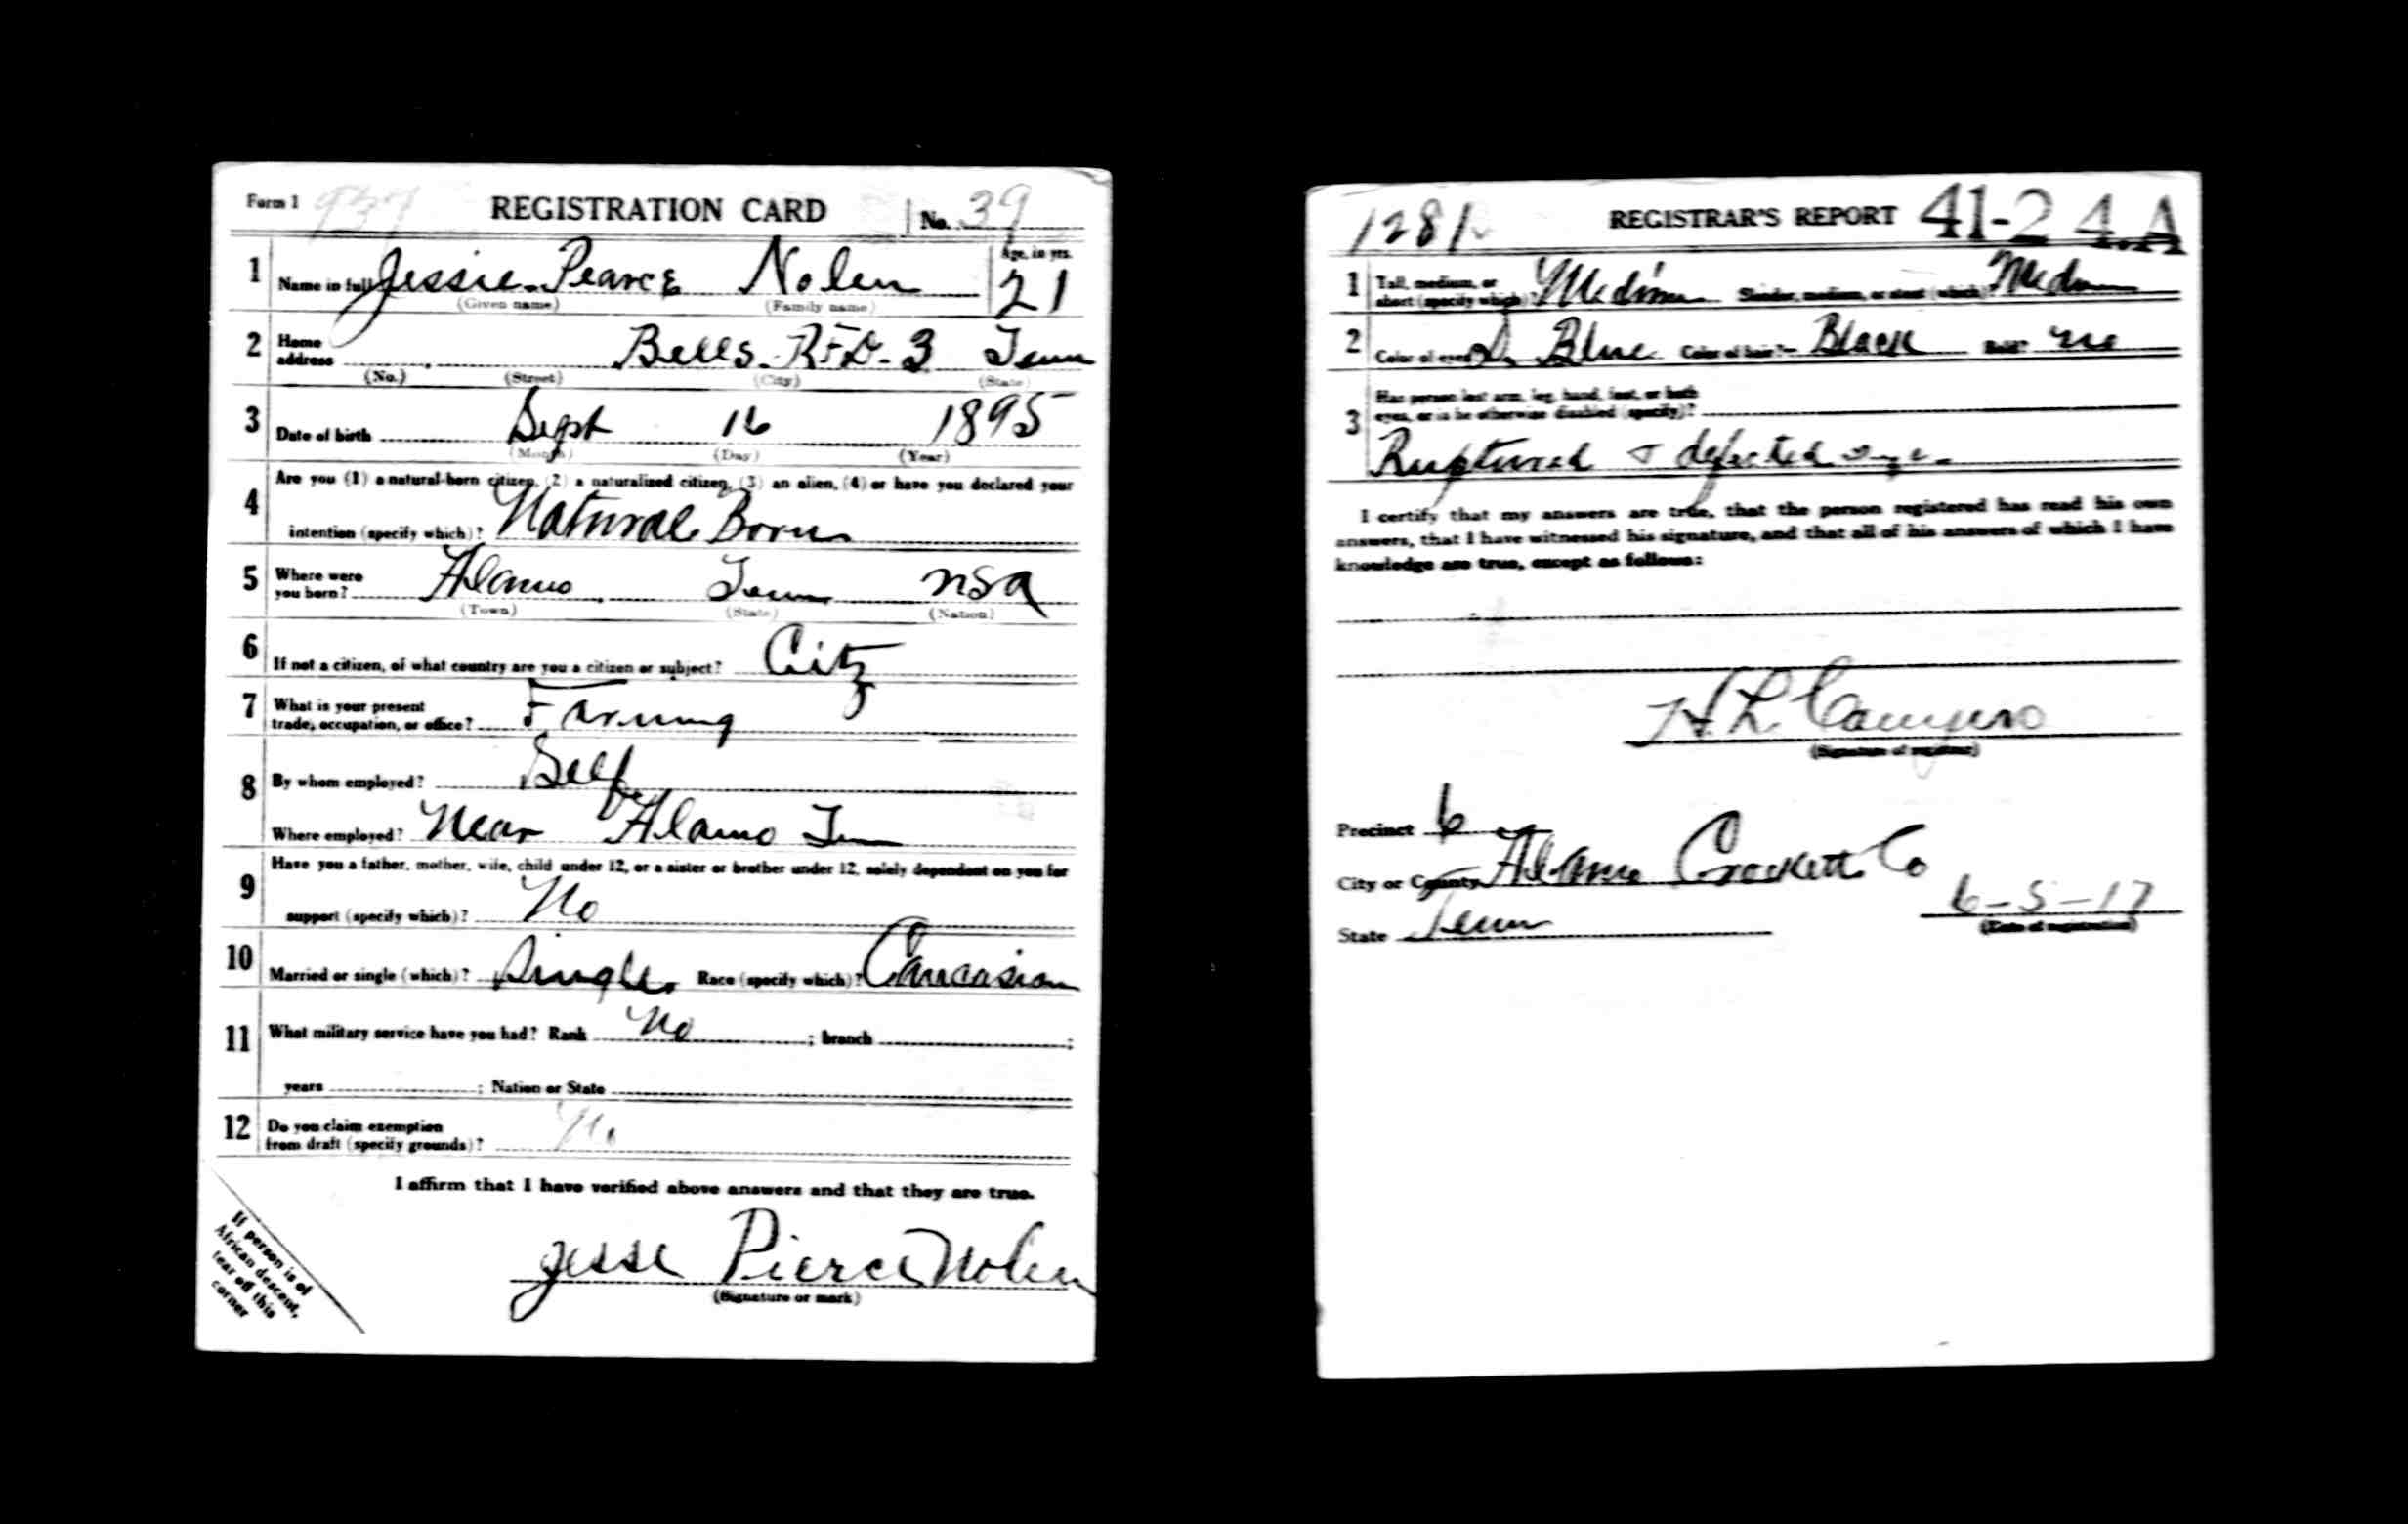 Form 1 937 REGISTRATION CARD No. 39
1 Name in full Jessie Pearce Nolen Age, in yrs. 21
(Given name) (Family name)
2 Home address Bells RFD. 3 Tenn
(No.) (Street) (City) (State)
3 Date of birth Sept 16 1895
(Month) (Day) (Year)
4 Are you (1) a natural-born citizen, (2) a naturalized citizen, (3) an alien, (4) or have you declared your
intention (specify which)? Natural Born
5 Where were you born? Alamo Tenn USA
(Town) (State) (Nation)
6 If not a citizen, of what country are you a citizen or subject? Citz
7 What is your present trade, occupation, or office? Farming
8 By whom employed? Self
Where employed? Near Alamo Tenn
9 Have you a father, mother, wife, child under 12, or a sister or brother under 12, solely dependent on you for
support (specify which)? No
10 Married or single (which)? Single Race (specify which)? Caucasian
11 What military service have you had? Rank No ; branch ;
years ; Nation or State
12 Do you claim exemption from draft (specify grounds)? No
I affirm that I have verified above answers and that they are true.
Jesse Pierce Nolen
(Signature or mark)
If person is of
African descent,
tear off this
corner
1281 REGISTRAR'S REPORT 41-2 4.A
1 Tall, medium, or short (specify which)? Medium Slender, medium, or stout (which)? Medium
2 Color of eyes? D. Blue Color of hair? Black Bald? no
3 Has person lost arm, leg, hand, foot, or both
eyes, or is he otherwise disabled (specify)?
Ruptured & defected eye
I certify that my answers are true, that the person registered has read his own
answers, that I have witnessed his signature, and that all of his answers of which I have
knowledge are true, except as follows:
H L
(Signature of registrar)
Precinct 6
City or County Alamo Crockett Co
State Tenn 6-5-17
(Date of registration)